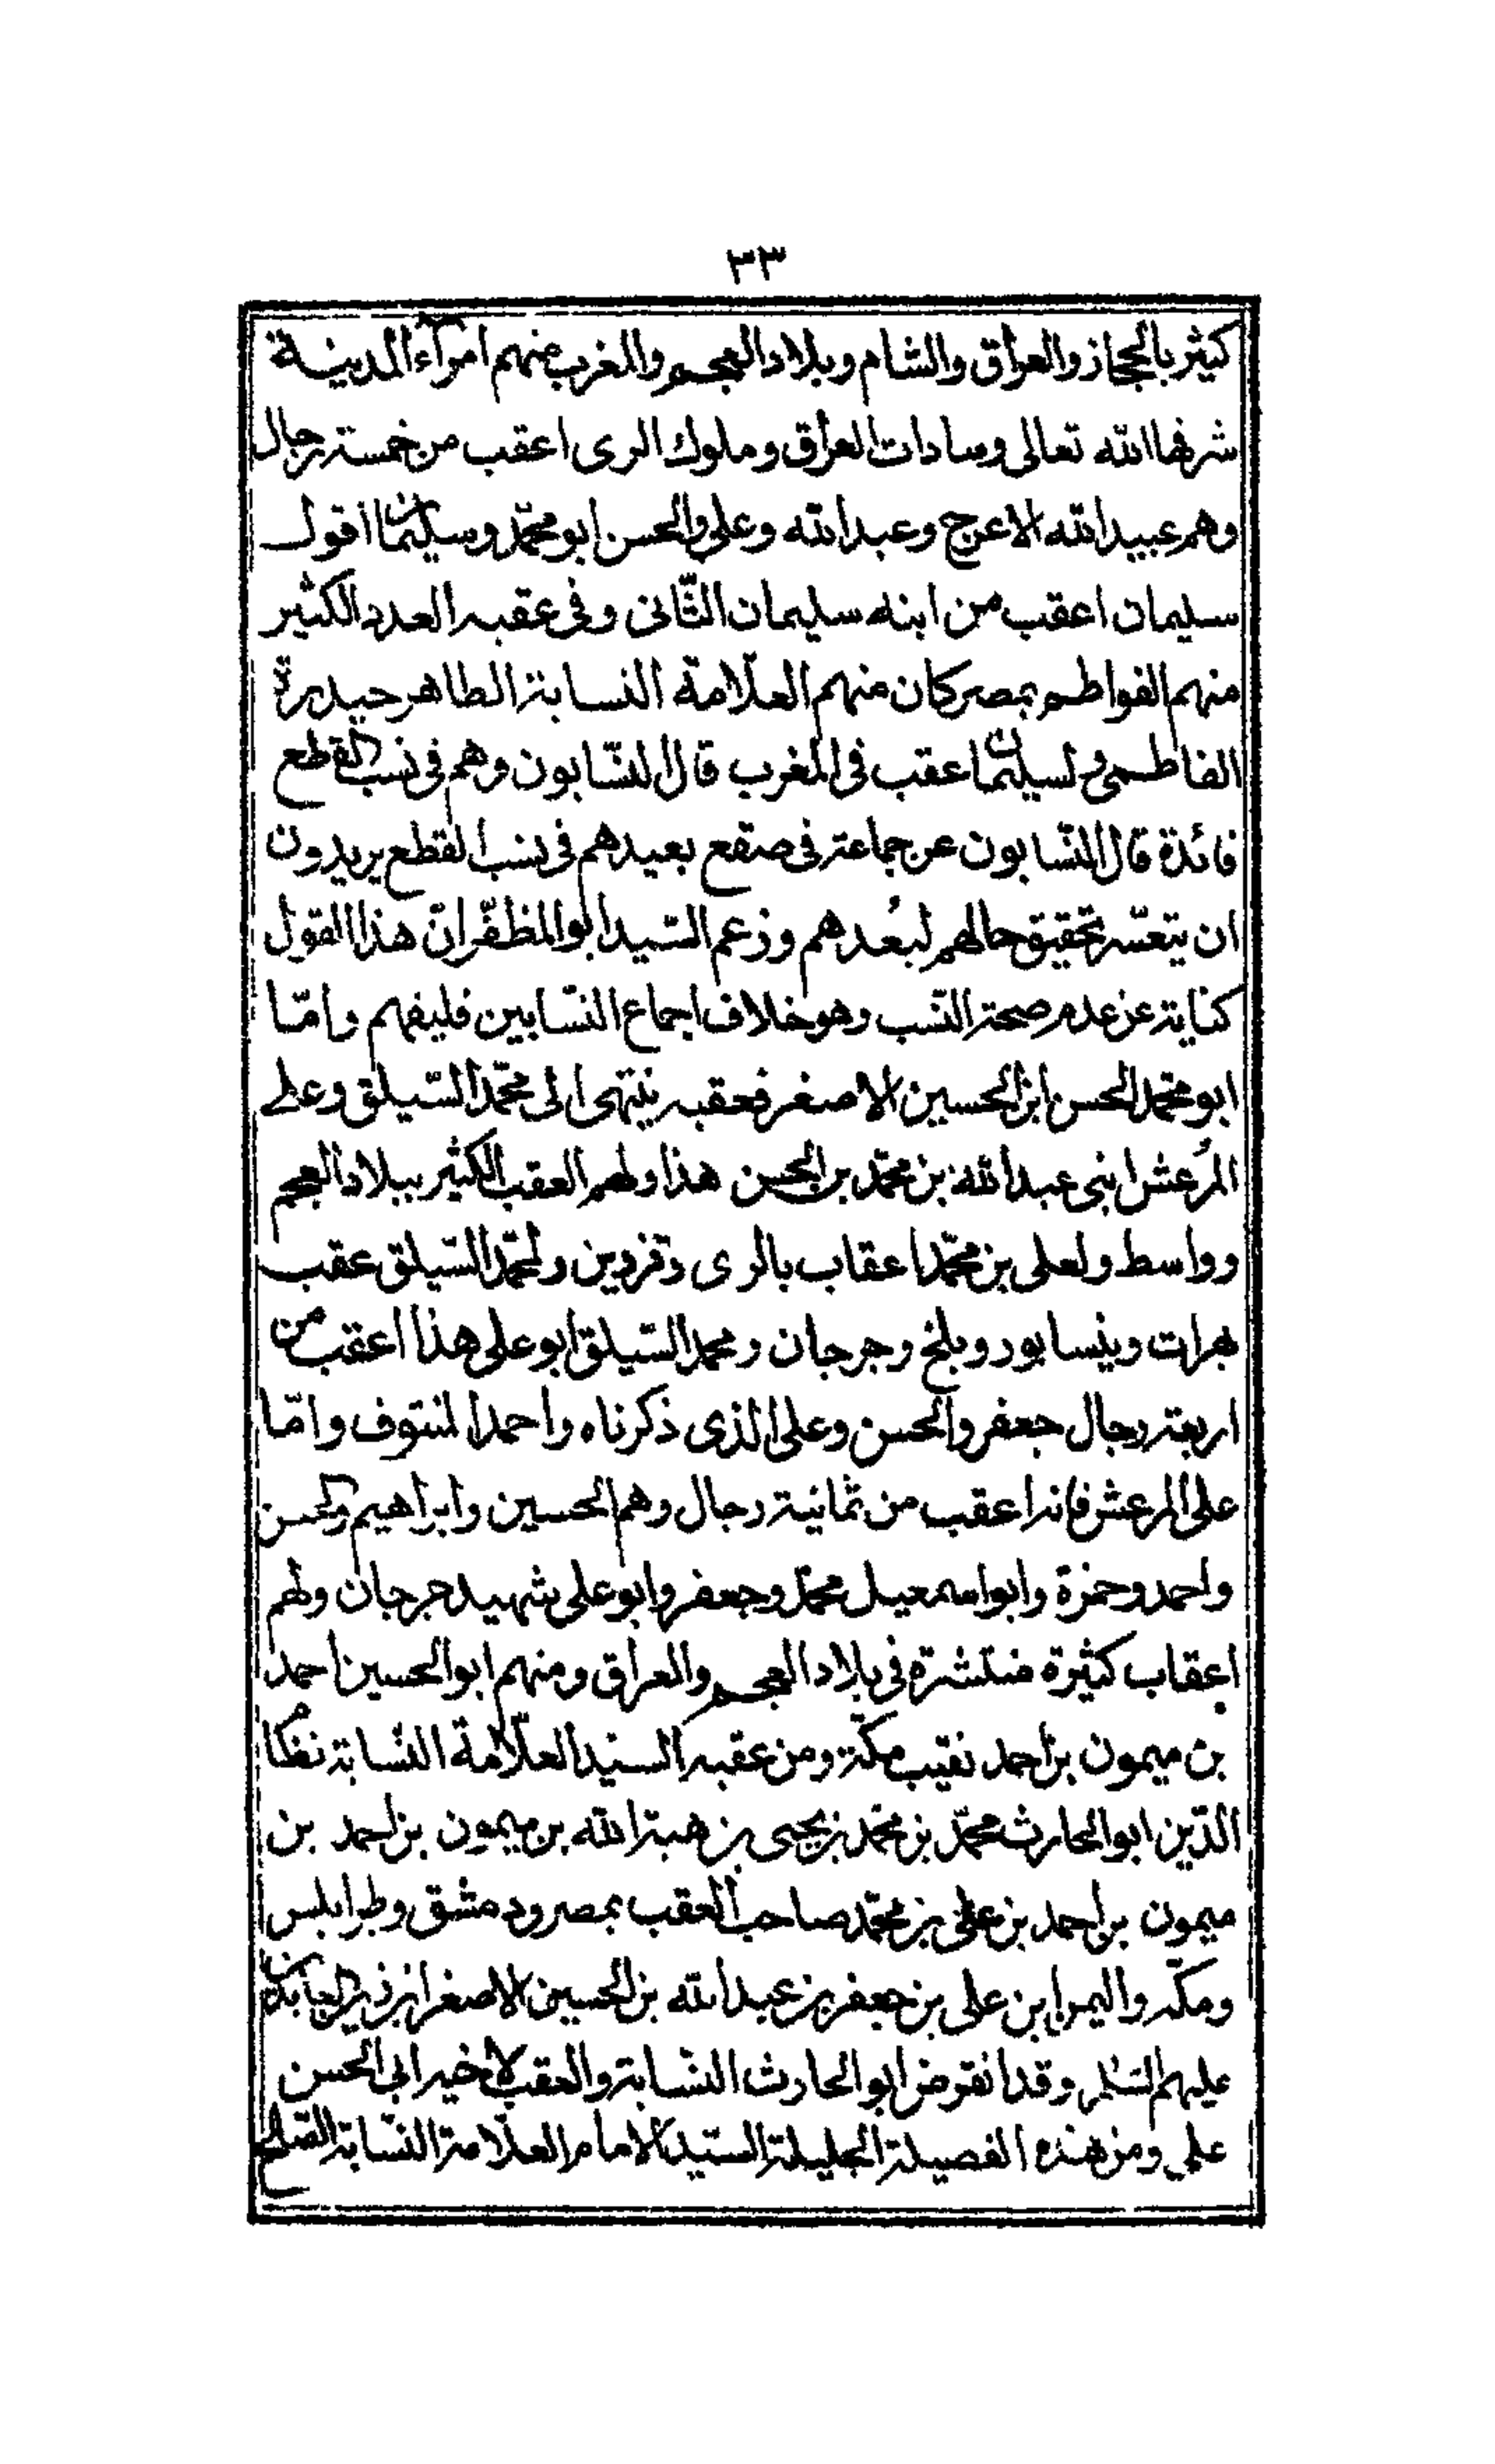 ٣٣
كثير بالحجاز والعراق والشام وبلاد العجم والمغرب منهم امرآء المدينة
شرفها الله تعالى وسادات العراق وملوك الرى اعقب من خمسة رجال
وهم عبيد الله الاعرج وعبد الله وعلى والحسن ابو محمّد وسليمان اقول
سليمان اعقب من ابنه سليمان الثّانى وفى عقبه العدد الكثير
منهم الفواطم بمصر كان منهم العلّامة النسابة الطاهر حيدرة
الفاطمى ولسليمان عقب فى المغرب قال النسّابون وهم فى نسب القطع
فائدة قال النسّابون عن جماعة فى صقع بعيد هم فى نسب القطع يريدون
ان يتعسّر تحقيق حالهم لبُعدهم وزعم السّيد ابو المظفّر انّ هذا القول
كناية عن عدم صحة النّسب وهو خلاف اجماع النسّابين فليفهم وامّا
ابو محمّد الحسن ابن الحسين الاصغر فعقبه ينتهى الى محمّد السّيلق وعلى
المُرعش ابنى عبد الله بن محمّد بن الحسن هذا ولهم العقب الكثير ببلاد العجم
وواسط ولعلى بن محمّد اعقاب بالرى وقزوين ولمحمّد السّيلق عقب
بهرات ونيسابور وبلخ وجرجان ومحمد السّيلق ابو على هذا اعقب من
اربعة رجال جعفر والحسن وعلى الذى ذكرناه واحمد المنتوف وامّا
على المرعش فانه اعقب من ثمانية رجال وهم الحسين وابراهيم والحسن
واحمد وحمزة وابو اسمعيل محمّد وجعفر وابو على شهيد جرجان ولهم
اعقاب كثيرة منتشرة فى بلاد العجم والعراق ومنهم ابو الحسين احمد
بن ميمون بن احمد نقيب مكّة ومن عقبه السيد العلّامة النسّابة نظام
الدّين ابو الحارث محمّد بن محمّد بن يحيى بن هبة الله بن ميمون بن احمد بن
ميمون بن احمد بن على بن محمّد صاحب العقب بمصر ودمشق وطرابلس
ومكّه واليمن ابن على بن جعفر بن عبد الله بن الحسين الاصغر ابن زين العابدين
عليهم السّلام وقد انقرض ابو الحارث النسّابة والعقب لاخيه ابى الحسن
على ومن هذه الفصيلة الجليلة السّيد الامام العلّامة النسّابة الصّالح